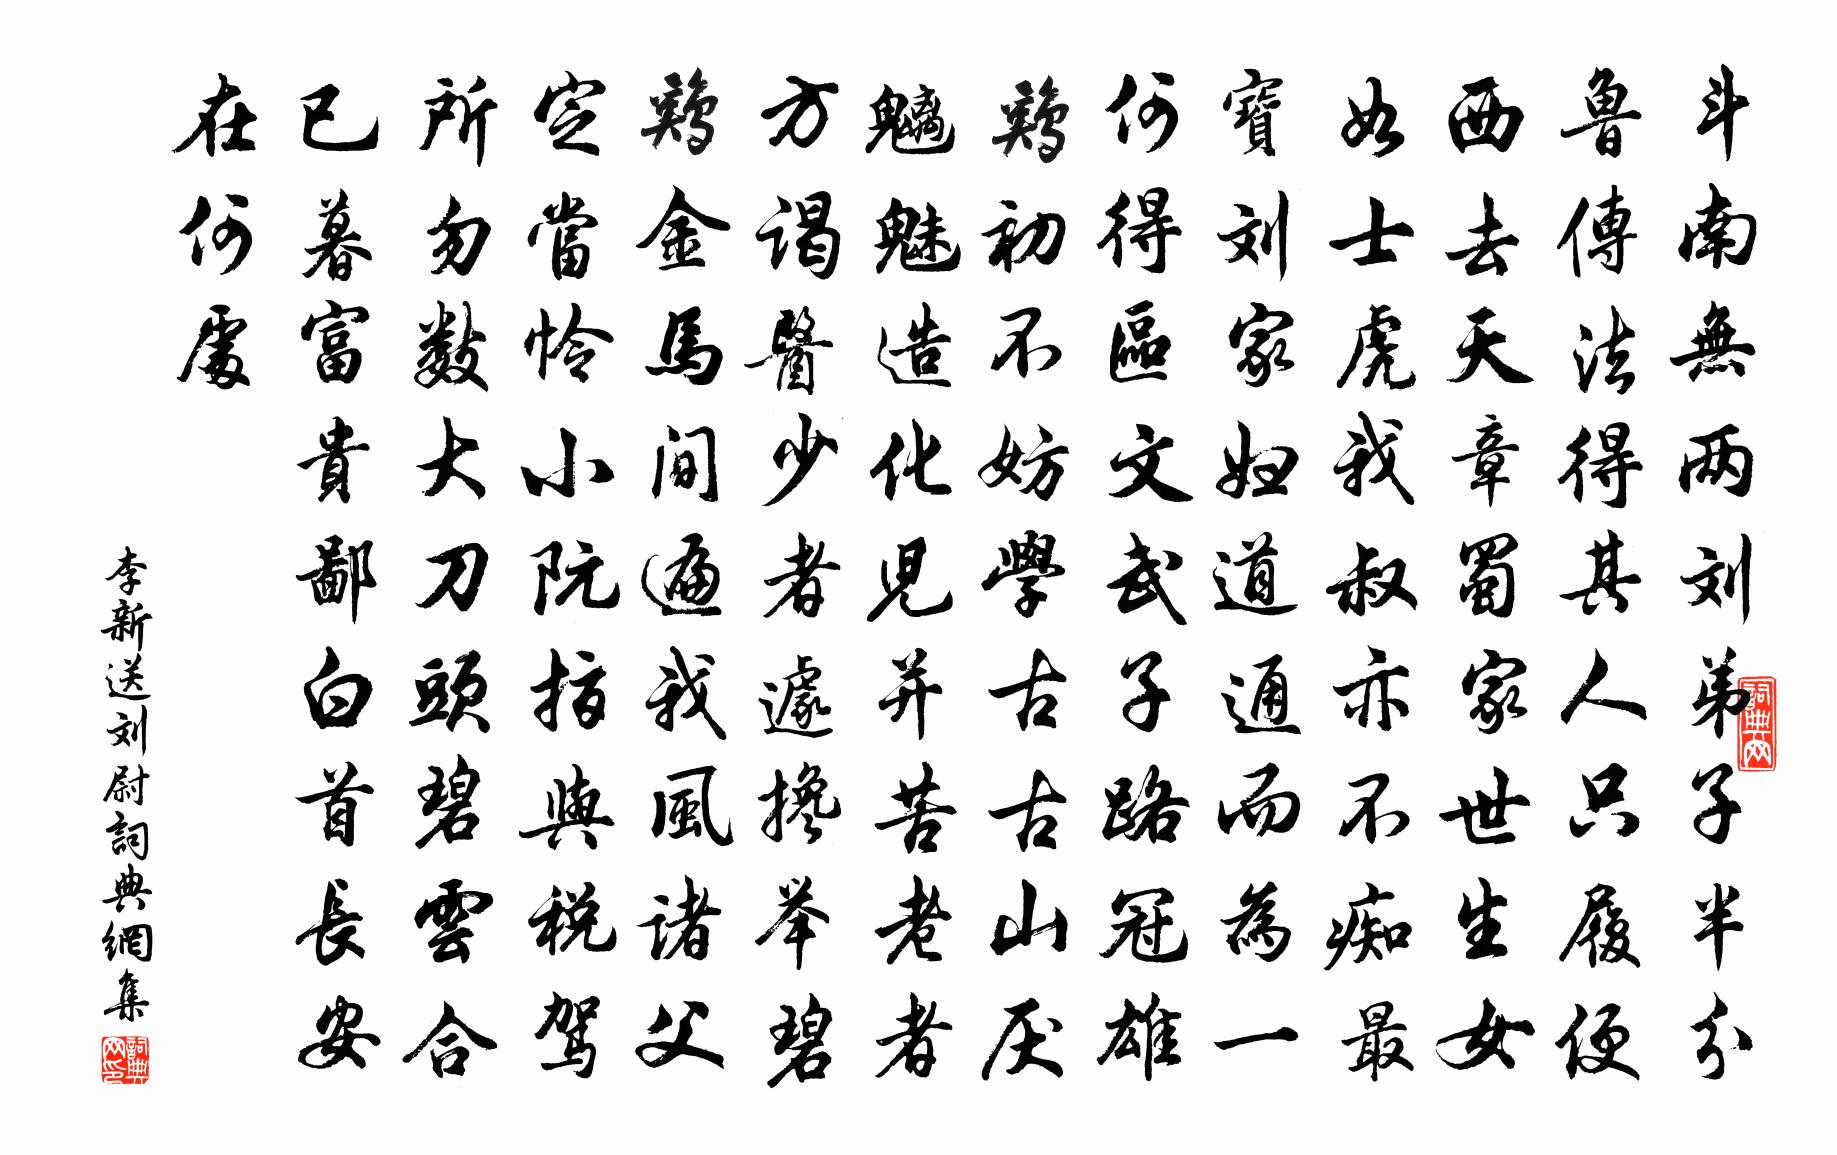 斗南無两刘弟子半分
魯傳法得其人只履便
西去天章蜀家世生女
如士虎我叔亦不痴最
寶刘家妞道通而為一
何得區文武子路冠雄
鷄初不妨學古古山厌
魑魅造化児并苦老者
方谒醫少者遽搀举碧
鷄金馬间遍我風诸父
定當怜小阮指與税驾
所勿数大刀頭碧雲合
已暮富貴鄙白首長安
在何處
李新送刘尉詞典網集
詞典网
詞典网印